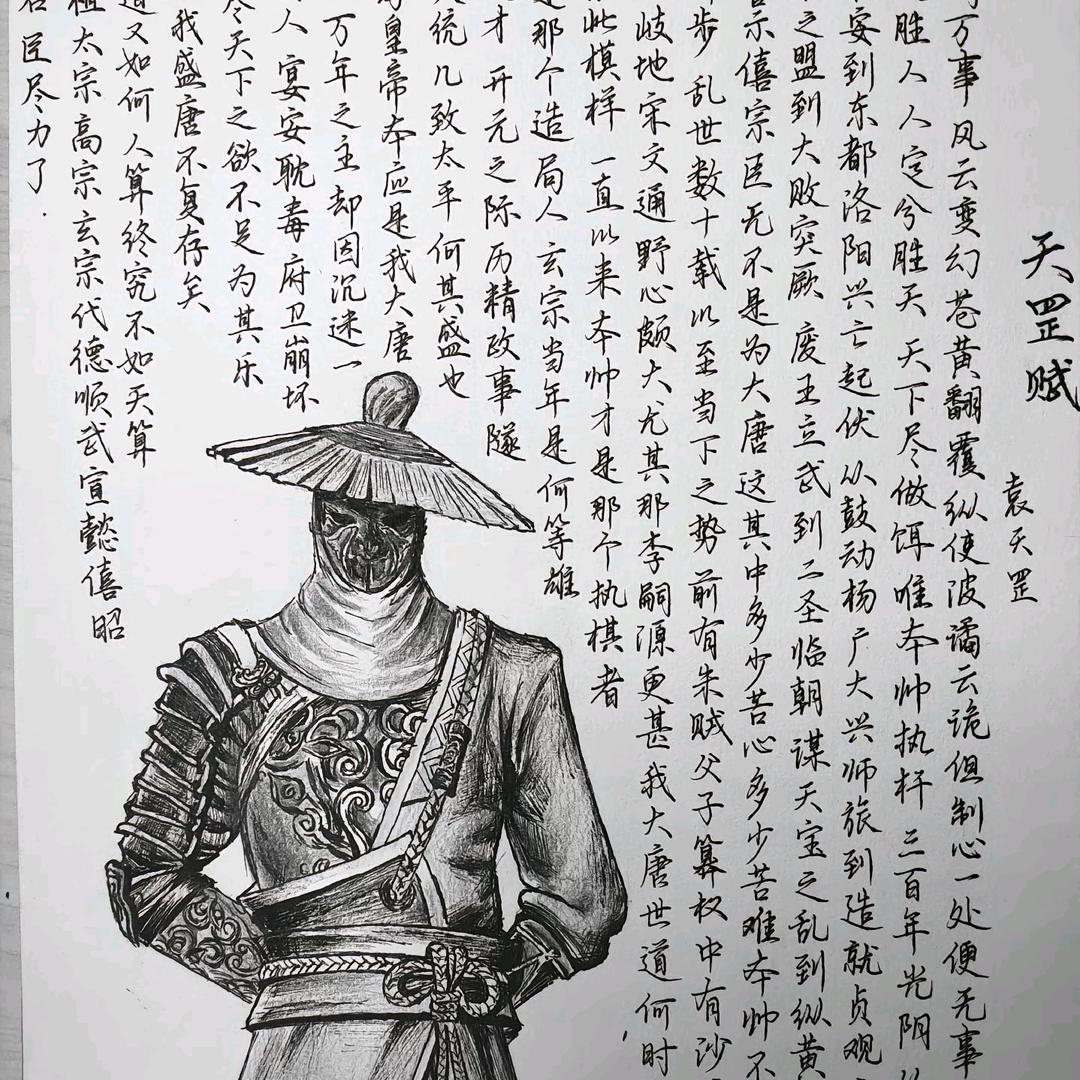 天罡赋
袁天罡
万事风云变幻苍黄翻覆纵使波谲云诡但制心一处便无事
胜人人定兮胜天天下尽做饵唯本帅执杆三百年光阴从
安到东都洛阳兴亡起伏从鼓动杨广大兴师旅到造就贞观
之盟到大败突厥废王立武到二圣临朝谋天宝之乱到纵黄
示僖宗臣无不是为大唐这其中多少苦心多少苦难本帅不
步乱世数十载以至当下之势前有朱贼父子篡权中有沙
歧地宋文通野心颇大尤其那李嗣源更甚我大唐世道何时
此模样一直以来本帅才是那个执棋者
那个造局人玄宗当年是何等雄
才开元之际历精政事隧
统几致太平何其盛也
皇帝本应是我大唐
万年之主却因沉迷一
人宴安耽毒府卫崩坏
尽天下之欲不足为其乐
我盛唐不复存矣
道又如何人算终究不如天算
祖太宗高宗玄宗代德顺武宣懿僖昭
臣尽力了.